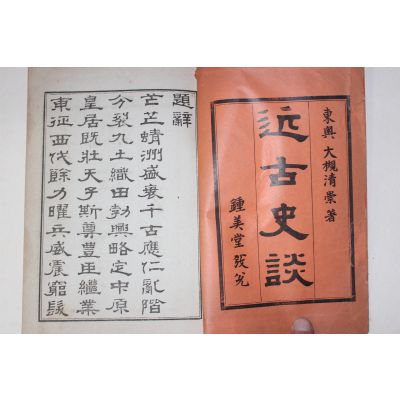 東奥 大槻清崇著
近古史談
鍾美堂發兌
題辭
芒芒蜻洲盛衰千古應仁亂階
分裂九土織田勃興略定中原
皇居既壯天子斯尊豊臣繼業
東征西伐餘力曜兵威震窮髮